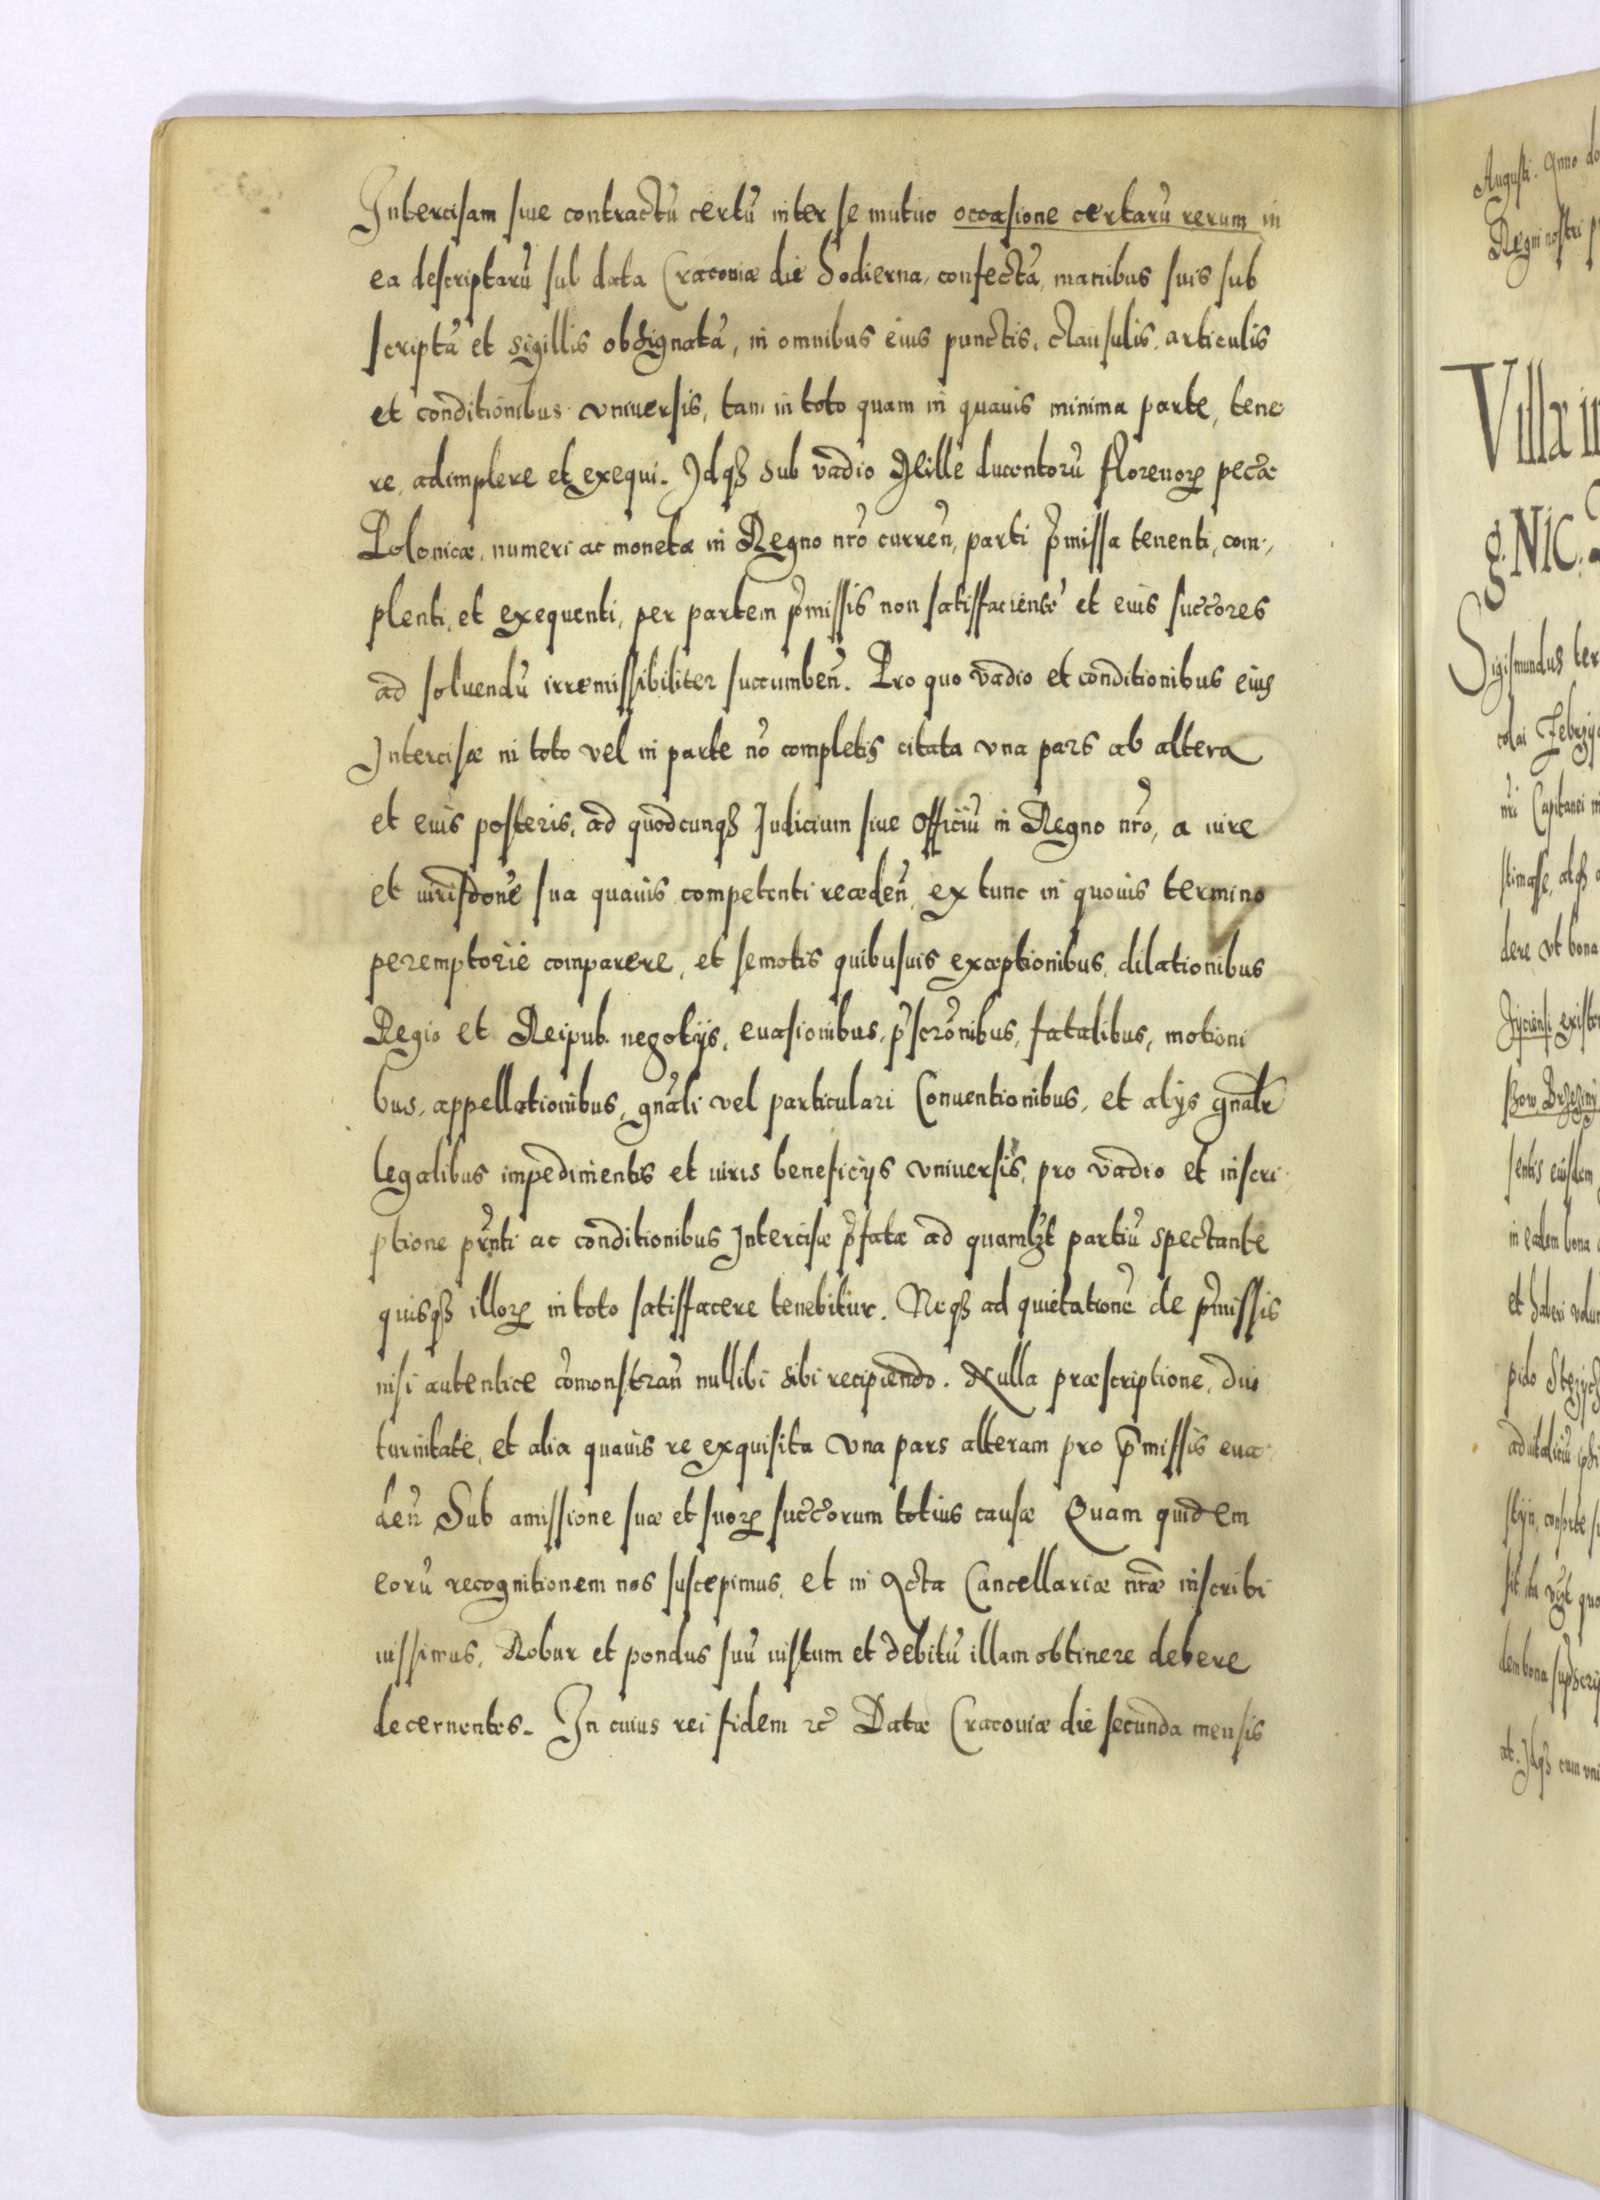 Intercisam siue contractũ certũ inter se mutuo occasione certarũ rerum in
ea descriptarũ sub data Cracouiæ die hodierna, confectã, manibus suis sub
scriptã et sigillis obsignatã, in omnibus eius punctis, clausulis, articulis
et conditionibus vniuersis, tam in toto quam in quauis minima parte, tene
re, adimplere et exequi. Idqꝫ sub vadio Mille ducentorũ florenoꝝ pec̃æ
Polonicæ, numeri ac monetæ in Regno nr̃o curreñ, parti p̃missa tenenti, com-
plenti, et exequenti, per partem p̃missis non satisfacientẽ et eius succ̃ores
ad soluendũ irremissibiliter succumbeñ. Pro quo vadio et conditionibus eius
Intercisæ in toto vel in parte nõ completis citata vna pars ab altera
et eius posteris, ad quodcunqꝫ Iudicium siue Officiũ in Regno nr̃o, a iure
et iurisdõne sua quauis competenti recedeñ, ex tunc in quouis termino
peremptorie comparere, et semotis quibusuis exceptionibus, dilationibus
Regio et Reipub. negotijs, euasionibus, p̃scrõnibus, fatalibus, motioni
bus, appellationibus, gñali vel particulari Conuentionibus, et alijs gñalr
legalibus impedimentis et iuris beneficijs vniuersis, pro vadio et inscri
ptione pr̃nti ac conditionibus Intercisæ p̃fatæ ad quamlꝫt partiũ spectante
quisqꝫ illoꝝ in toto satisfacere tenebitur. Neqꝫ ad quietationẽ de p̃missis
nisi autentice cõmonstrañ nullibi sibi recipiendo. Nulla præscriptione, diu
turnitate, et alia quauis re exquisita vna pars alteram pro p̃missis eua
deñ Sub amissione suæ et suoꝝ succ̃orum totius causæ Quam quidem
eorũ recognitionem nos suscepimus, et in Acta Cancellariæ nr̃æ inscribi
iussimus, Robur et pondus suũ iustum et debitũ illam obtinere debere
decernentes. In cuius rei fidem ꝛc̃ Datæ Cracouiæ die secunda mensis
Augusti. Anno
Regni nostri
Villæ
g. NIC.
Sigismundus
Capitanei
dere vt bona
in eadem bona
et haberi
dem bona